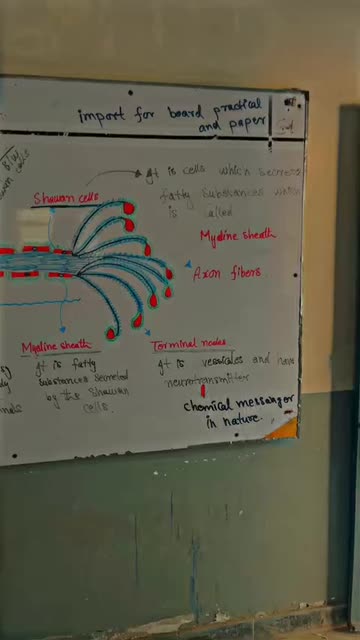 import for board practical
and paper
B/W
cells
Shawan cells
It is cells which secretes
fatty substances which
is called
Mydine sheath
Axon fibers.
Mydine sheath
It is fatty
substances secreted
by the Shawan
cells.
Terminal nodes
It is vesicales and have
neurotransmitter
chemical messangor
in nature.